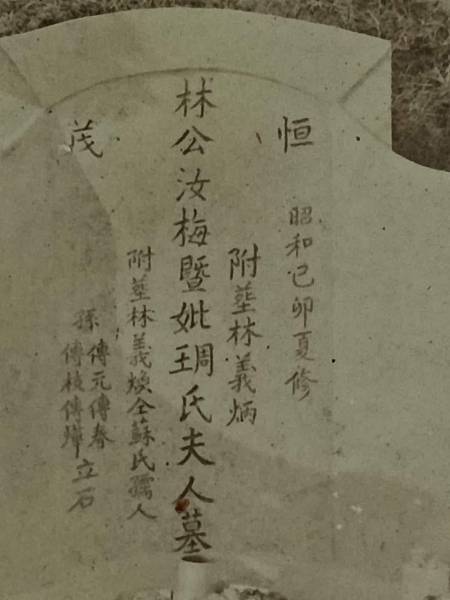 恒
茂
昭和己卯夏修
附塟林義炳
林公汝梅暨妣琱氏夫人墓
附塟林義煥仝蘇氏孺人
孫
傳元傳春
傳枝傳
立石